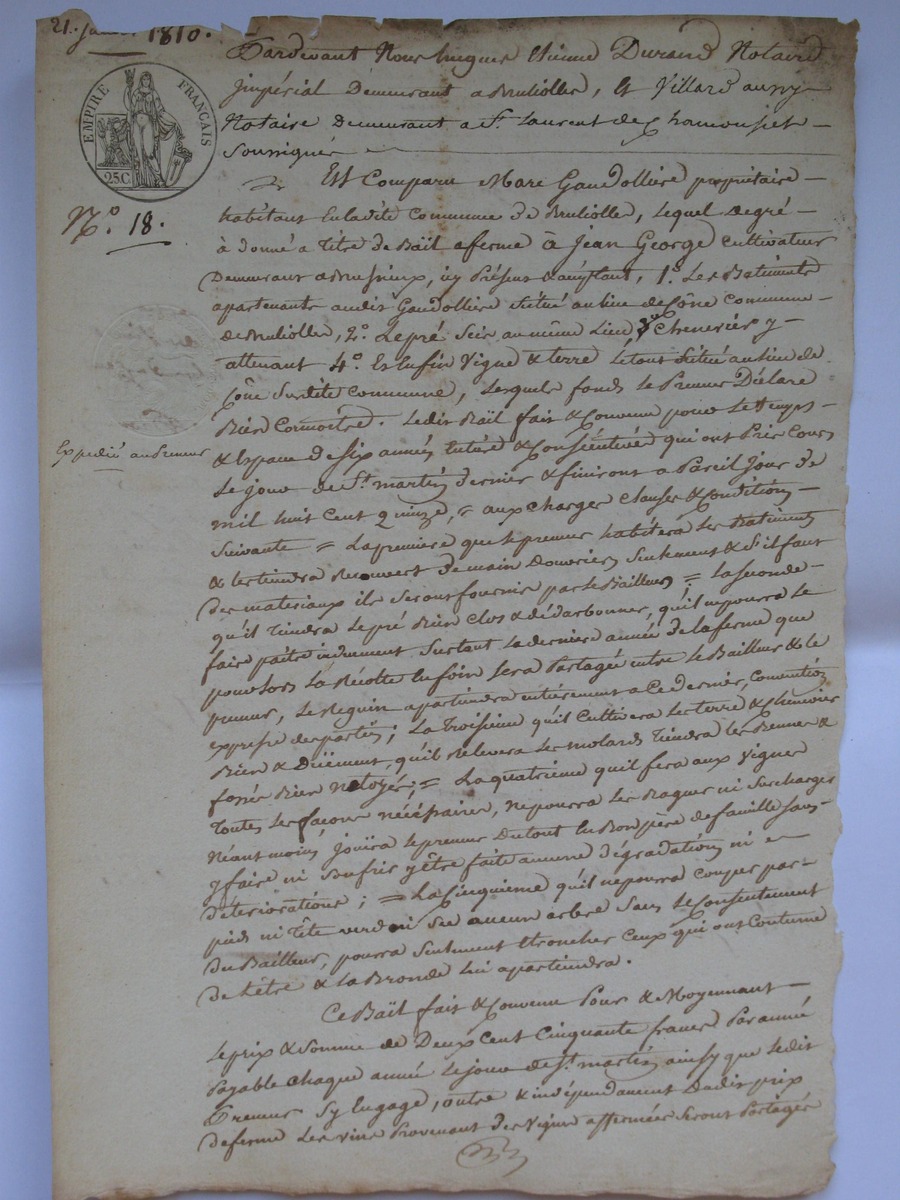 21. Janv 1810.
EMPIRE FRANÇAIS
25.C
N.° 18.
Expedié au Preneur
Pardevant Nous hugues Etienne Durand Notaire
Impérial Demeurant a Mulioller, & Villard aussy
Notaire Demeurant a St. Laurent de Chamousset
Soussignés
Est Comparu Marc Gaudollière propriétaire
habitant En ladite Commune de Muliolle, lequel De gré
à donné a Titre de Baïl a ferme à Jean George Cultivateur
Demeurant a Mussieux, icy Présent & acceptant, 1°. Les Batiments
apartenants audit Gaudollière Situé au lieu de Cône Commune
de Muliolle, 2.° Le pré Scis au même Lieu 3° Chenevier y
attenant 4.° Et Enfin Vigne & terre Le tout Situé au lieu de
Cône Surdite Commune, Lesquels fonds le Preneur Déclare
Bien Connoitre. Ledit Baïl fait & Convenu pour Le temps
& Espace de Six années Entière & Conséentive qui ont Pris Cours
Le jour de St. martin dernier & finiront a Pareil Jour de
mil huit Cent quinze, = aux Charges Clauses & Conditions
Suivante = La premiere que le preneur habitera Les Batiments
& les tiendra Recouvert De main D'ouvriers Seulement & S'il faut
des materiaux ils Seront fournis par le Bailleur = La Seconde
qu'il Tiendra le pré Bien Clos & dédarbonner, qu'il ne poura le
faire paître indument Surtout La derniere année de la ferme que
pour lors La Récolte En foin Sera Partagée entre le Bailleur & le
preneur, Le Reguin apartiendra entierement a Ce dernier, Convention
expresse des parties; La Troisieme qu'il Cultivera Les terre & Chenevier
Bien & Düement, qu'il Relevera Les molards Tiendra les Berme &
fossés Bien Netoyés; = La quatrieme qu'il fera aux Vignes
Toutes Les façons nécéssaires, ne poura Les Raguer ni Surcharger
Néant moins Jouïra le preneur Du tout En Bon père de famille Sans
y faire ni Soufrir y être faite aucune Dégradations ni
Déteriorations; = La Cinquieme qu'il ne poura Couper par
pieds ni Tête verd ni Sec aucun arbre Sans Le Consentement
du Bailleur, poura Seulement Etroncher Ceux qui ont Coutume
de L'être & La Bronde lui apartiendra.
Ce Baïl fait & Convenu Pour & Moyennant
Le prix & Somme de Deux Cent Cinquante francs Par année
Payable Chaque année Le jour de St. martin ainsy que Ledit
Preneur S'y Engage, outre & indépendament Dudit prix
de ferme Les vins Provenant des Vigne affermées Seront Partagés